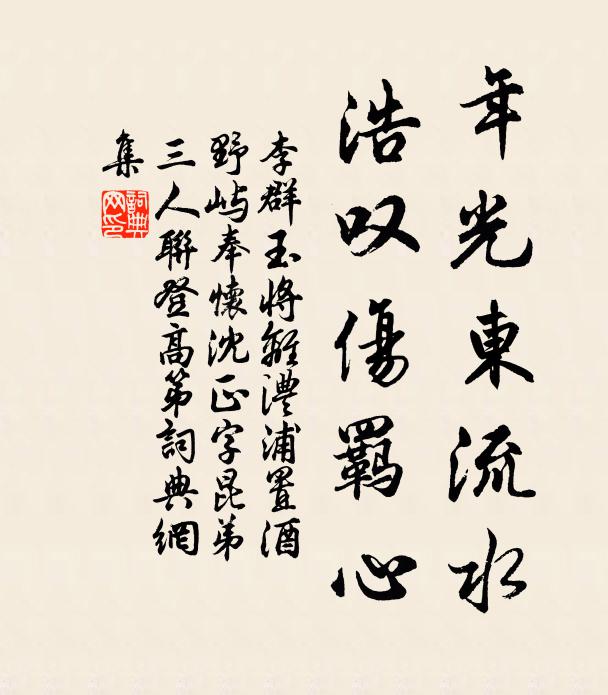 年光東流水
浩叹傷羈心
李群玉將離澧浦置酒
野嶼奉懷沈正字昆弟
三人聯登高第詞典網
集
詞典
网印